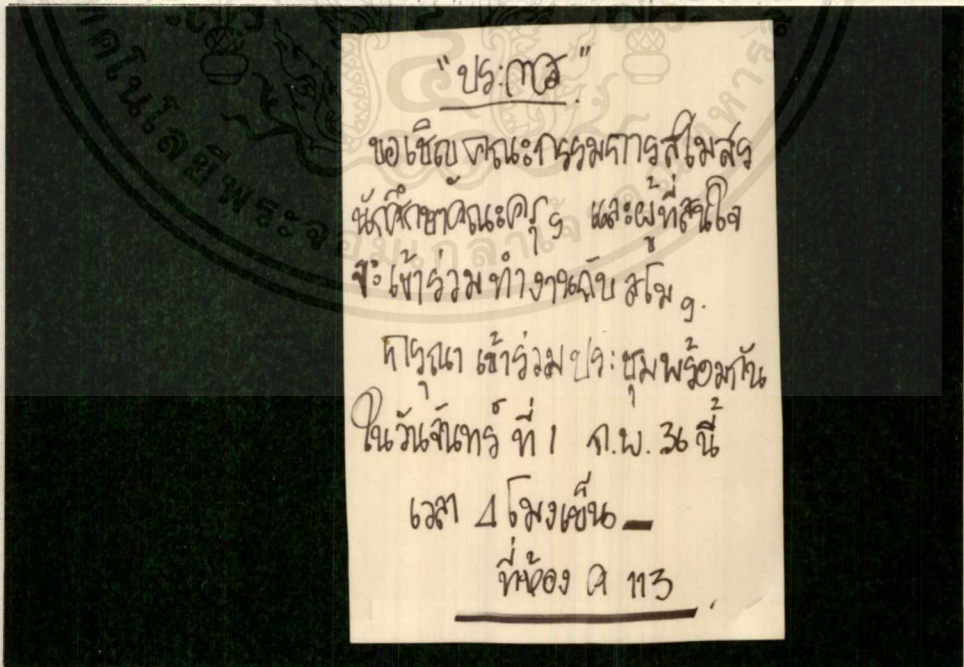 "ประกาศ"
ขอเชิญคณะกรรมการสโมสร
นักศึกษาคณะครุฯ และผู้ที่สนใจ
จะเข้าร่วมทำงานกับ สโมฯ.
กรุณา เข้าร่วมประชุมพร้อมกัน
ในวันจันทร์ ที่ 1 ก.พ. 36 นี้
เวลา 4 โมงเย็น
ที่ห้อง ค 113